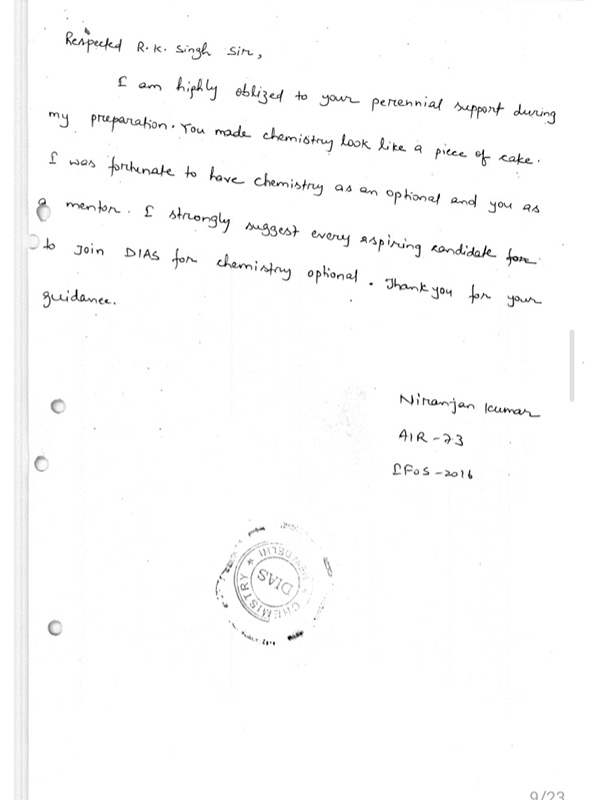 Respected R.K. Singh Sir,
I am highly oblized to your perennial support during
my preparation. You made chemistry look like a piece of cake.
I was fortunate to have chemistry as an optional and you as
a mentor. I strongly suggest every aspiring candidate for
to join DIAS for chemistry optional. Thank you for your
guidance.
Niranjan Kumar
AIR-73
IFoS-2016
CHEMISTRY * NEW DELHI
DIAS
9/23